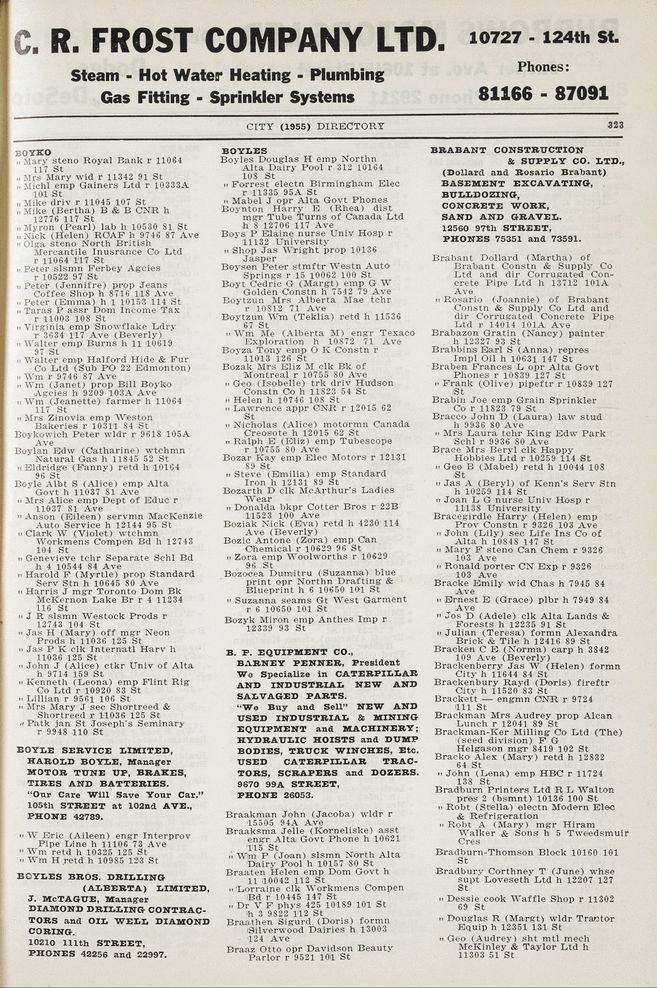 C. R. FROST COMPANY LTD.
10727 - 124th St.
Steam - Hot Water Heating - Plumbing
Gas Fitting - Sprinkler Systems
Phones:
81166 - 87091
CITY (1955) DIRECTORY
323
BOYKO
" Mary steno Royal Bank r 11064
117 St
" Mrs Mary wid r 11342 91 St
" Michl emp Gainers Ltd r 10333A
101 St
" Mike driv r 11045 107 St
" Mike (Bertha) B & B CNR h
12776 117 St
" Myron (Pearl) lab h 10530 81 St
" Nick (Helen) RCAF h 9746 87 Ave
" Olga steno North British
Mercantile Inusrance Co Ltd
r 11064 117 St
" Peter slsmn Ferbey Agcies
r 10522 97 St
" Peter (Jennifre) prop Jeans
Coffee Shop h 8716 118 Ave
" Peter (Emma) h 1 10153 114 St
" Taras P assr Dom Income Tax
r 11003 108 St
" Virginia emp Snowflake Ldry
r 3634 117 Ave (Beverly)
" Walter emp Burns h 11 10619
97 St
" Walter emp Halford Hide & Fur
Co Ltd (Sub PO 22 Edmonton)
" Wm r 9746 87 Ave
" Wm (Janet) prop Bill Boyko
Agcies h 9209 103A Ave
" Wm (Jeanette) farmer h 11064
117 St
" Mrs Zinovia emp Weston
Bakeries r 10311 84 St
Boykowich Peter wldr r 9618 105A
Ave
Boylan Edw (Catharine) wtchmn
Natural Gas h 11845 52 St
" Eldridge (Fanny) retd h 10164
96 St
Boyle Albt S (Alice) emp Alta
Govt h 11037 81 Ave
" Mrs Alice emp Dept of Educ r
11037 81 Ave
" Anson (Eileen) servmn MacKenzie
Auto Service h 12144 95 St
" Clark W (Violet) wtchmn
Workmens Compen Bd h 12743
104 St
" Genevieve tchr Separate Schl Bd
h 4 10544 84 Ave
" Harold F (Myrtle) prop Standard
Serv Stn h 10645 80 Ave
" Harris J mgr Toronto Dom Bk
McKernon Lake Br r 4 11234
116 St
" J R slsmn Westock Prods r
12743 104 St
" Jas H (Mary) off mgr Neon
Prods h 11036 125 St
" Jas P K clk Internatl Harv h
11036 125 St
" John J (Alice) ctkr Univ of Alta
h 9714 159 St
" Kenneth (Leona) emp Flint Rig
Co Ltd r 10920 83 St
" Lillian r 9561 106 St
" Mrs Mary J sec Shortreed &
Shortreed r 11036 125 St
" Patk jan St Joseph's Seminary
r 9948 110 St
BOYLE SERVICE LIMITED,
HAROLD BOYLE, Manager
MOTOR TUNE UP, BRAKES,
TIRES AND BATTERIES.
"Our Care Will Save Your Car."
105th STREET at 102nd AVE.,
PHONE 42789.
" W Eric (Aileen) engr Interprov
Pipe Line h 11106 73 Ave
" Wm retd h 10325 125 St
" Wm H retd h 10985 123 St
BOYLES BROS. DRILLING
(ALBERTA) LIMITED,
J. McTAGUE, Manager
DIAMOND DRILLING CONTRAC-
TORS and OIL WELL DIAMOND
CORING.
10210 111th STREET,
PHONES 42256 and 22997.
BOYLES
Boyles Douglas H emp Northn
Alta Dairy Pool r 312 10164
108 St
" Forrest electn Birmingham Elec
r 11335 95A St
" Mabel J opr Alta Govt Phones
Boynton Harry E (Rhea) dist
mgr Tube Turns of Canada Ltd
h 8 12706 117 Ave
Boys P Elaine nurse Univ Hosp r
11132 University
" Shop Jas Wright prop 10136
Jasper
Boysen Peter stmftr Westn Auto
Springs r 15 10062 100 St
Boyt Cedric G (Margt) emp G W
Golden Constn h 7542 79 Ave
Boytzun Mrs Alberta Mae tchr
r 10812 71 Ave
Boytzun Wm (Teklia) retd h 11536
67 St
" Wm Me (Alberta M) engr Texaco
Exploration h 10872 71 Ave
Boyza Tony emp O K Constn r
11013 126 St
Bozak Mrs Eliz M clk Bk of
Montreal r 10755 80 Ave
" Geo (Isobelle) trk driv Hudson
Constn Co h 11823 54 St
" Helen h 10746 108 St
" Lawrence appr CNR r 12015 62
St
" Nicholas (Alice) motormn Canada
Creosote h 12015 62 St
" Ralph E (Eliz) emp Tubescope
r 10755 80 Ave
Bozar Kay emp Elec Motors r 12131
89 St
" Steve (Emilia) emp Standard
Iron h 12131 89 St
Bozarth D clk McArthur's Ladies
Wear
" Donalda bkpr Cotter Bros r 22B
11523 100 Ave
Boziak Nick (Eva) retd h 4230 114
Ave (Beverly)
Bozic Antone (Zora) emp Can
Chemical r 10629 96 St
" Zora emp Woolworths r 10629
96 St
Bozocea Dumitru (Suzanna) blue
print opr Northn Drafting &
Blueprint h 6 10650 101 St
" Suzanna seams Gt West Garment
r 6 10650 101 St
Bozyk Miron emp Anthes Imp r
12339 93 St
B. P. EQUIPMENT CO.,
BARNEY PENNER, President
We Specialize in CATERPILLAR
AND INDUSTRIAL NEW AND
SALVAGED PARTS.
"We Buy and Sell" NEW AND
USED INDUSTRIAL & MINING
EQUIPMENT and MACHINERY;
HYDRAULIC HOISTS and DUMP
BODIES, TRUCK WINCHES, Etc.
USED CATERPILLAR TRAC-
TORS, SCRAPERS and DOZERS.
9670 99A STREET,
PHONE 26053.
Braakman John (Jacoba) wldr r
15505 94A Ave
Braaksma Jelle (Korneliske) asst
engr Alta Govt Phone h 10621
115 St
" Wm P (Joan) slsmn North Alta
Dairy Pool h 10157 80 St
Braaten Helen emp Dom Govt h
11 10042 112 St
" Lorraine clk Workmens Compen
Bd r 10445 147 St
" Dr V F phys 425 10189 101 St
h 3 9822 112 St
Braathen Sigurd (Doris) formn
Silverwood Dairies h 13003
124 Ave
Braaz Otto opr Davidson Beauty
Parlor r 9521 101 St
BRABANT CONSTRUCTION
& SUPPLY CO. LTD.,
(Dollard and Rosario Brabant)
BASEMENT EXCAVATING,
BULLDOZING,
CONCRETE WORK,
SAND AND GRAVEL.
12560 97th STREET,
PHONES 75351 and 73591.
Brabant Dollard (Martha) of
Brabant Constn & Supply Co
Ltd and dir Corrugated Con-
crete Pipe Ltd h 13712 101A
Ave
" Rosario (Joannie) of Brabant
Constn & Supply Co Ltd and
dir Corrugated Concrete Pipe
Ltd r 14014 101A Ave
Brabazon Gratin (Nancy) painter
h 12327 93 St
Brabbins Earl S (Anna) repres
Impl Oil h 10631 147 St
Braben Frances L opr Alta Govt
Phones r 10839 127 St
" Frank (Olive) pipeftr r 10839 127
St
Brabin Joe emp Grain Sprinkler
Co r 11823 79 St
Bracco John D (Laura) law stud
h 9936 80 Ave
" Mrs Laura tchr King Edw Park
Schl r 9936 80 Ave
Brace Mrs Beryl clk Happy
Hobbies Ltd r 10259 114 St
" Geo B (Mabel) retd h 10044 108
St
" Jas A (Beryl) of Kenn's Serv Stn
h 10259 114 St
" Joan L G nurse Univ Hosp r
11138 University
Bracegirdle Harry (Helen) emp
Prov Constn r 9326 103 Ave
" John (Lily) sec Life Ins Co of
Alta h 10848 147 St
" Mary F steno Can Chem r 9326
103 Ave
" Ronald porter CN Exp r 9326
103 Ave
Bracke Emily wid Chas h 7945 84
Ave
" Ernest E (Grace) plbr h 7949 84
Ave
" Jos D (Adele) clk Alta Lands &
Forests h 12235 91 St
" Julian (Teresa) formn Alexandra
Brick & Tile h 12416 89 St
Bracken C E (Norma) carp h 3842
109 Ave (Beverly)
Brackenberry Jas W (Helen) formn
City h 11644 84 St
Brackenbury Rayd (Doris) fireftr
City h 11520 83 St
Brackett — engmn CNR r 9724
111 St
Brackman Mrs Audrey prop Alcan
Lunch r 12041 89 St
Brackman-Ker Milling Co Ltd (The)
(seed division) F G
Helgason mgr 8419 102 St
Bracko Alex (Mary) retd h 12832
64 St
" John (Lena) emp HBC r 11724
138 St
Bradburn Printers Ltd R L Walton
pres 2 (bsmnt) 10136 100 St
" Robt (Stella) electn Modern Elec
& Refrigeration
" Robt A (Mary) mgr Hiram
Walker & Sons h 5 Tweedsmuir
Cres
Bradburn-Thomson Block 10160 101
St
Bradbury Corthney T (June) whse
supt Loveseth Ltd h 12207 127
St
" Dessie cook Waffle Shop r 11302
69 St
" Douglas R (Margt) wldr Tractor
Equip h 12351 131 St
" Geo (Audrey) sht mtl mech
McKinley & Taylor Ltd h
11303 51 St